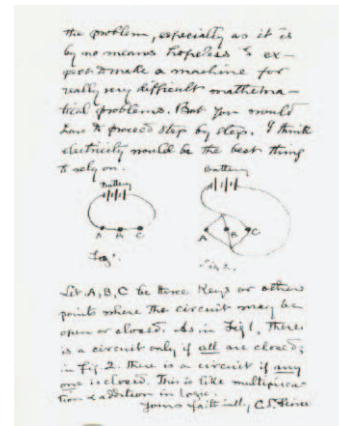 the problem, especially as it is
by no means hopeless to ex-
pect to make a machine for
really very difficult mathema-
tical problems. But you would
have to proceed step by step. I think
electricity would be the best thing
to rely on.
Battery
Battery
A B C
A B C
Fig 1.
Fig 2.
Let A, B, C be three keys or other
points where the circuit may be
open or closed. As in Fig 1, there
is a circuit only if all are closed;
in Fig. 2. there is a circuit if any
one is closed. This is like multiplica-
tion & addition in Logic.
Yours faithfully, C.S. Peirce